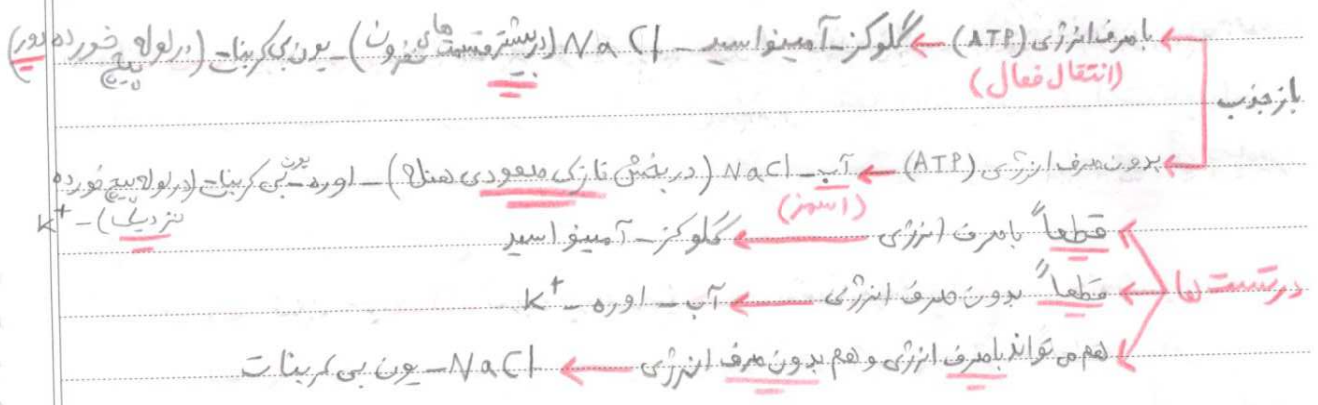 با صرف انرژی (ATP) ← گلوکز - آمینواسید - NaCl (در بیشتر قسمت های نفرون) - یون بی کربنات (در لوله پیچ خورده دور)
(انتقال فعال)
باز جذب
بدون صرف انرژی (ATP) ← آب - NaCl (در بخش نازک صعودی هنله) - اوره - یون بی کربنات (در لوله پیچ خورده
(اسمز)
نزدیک) - K⁺
قطعاً با صرف انرژی ← گلوکز - آمینواسید
در تست ها
قطعاً بدون صرف انرژی ← آب - اوره - K⁺
هم می تواند با صرف انرژی و هم بدون صرف انرژی ← NaCl - یون بی کربنات